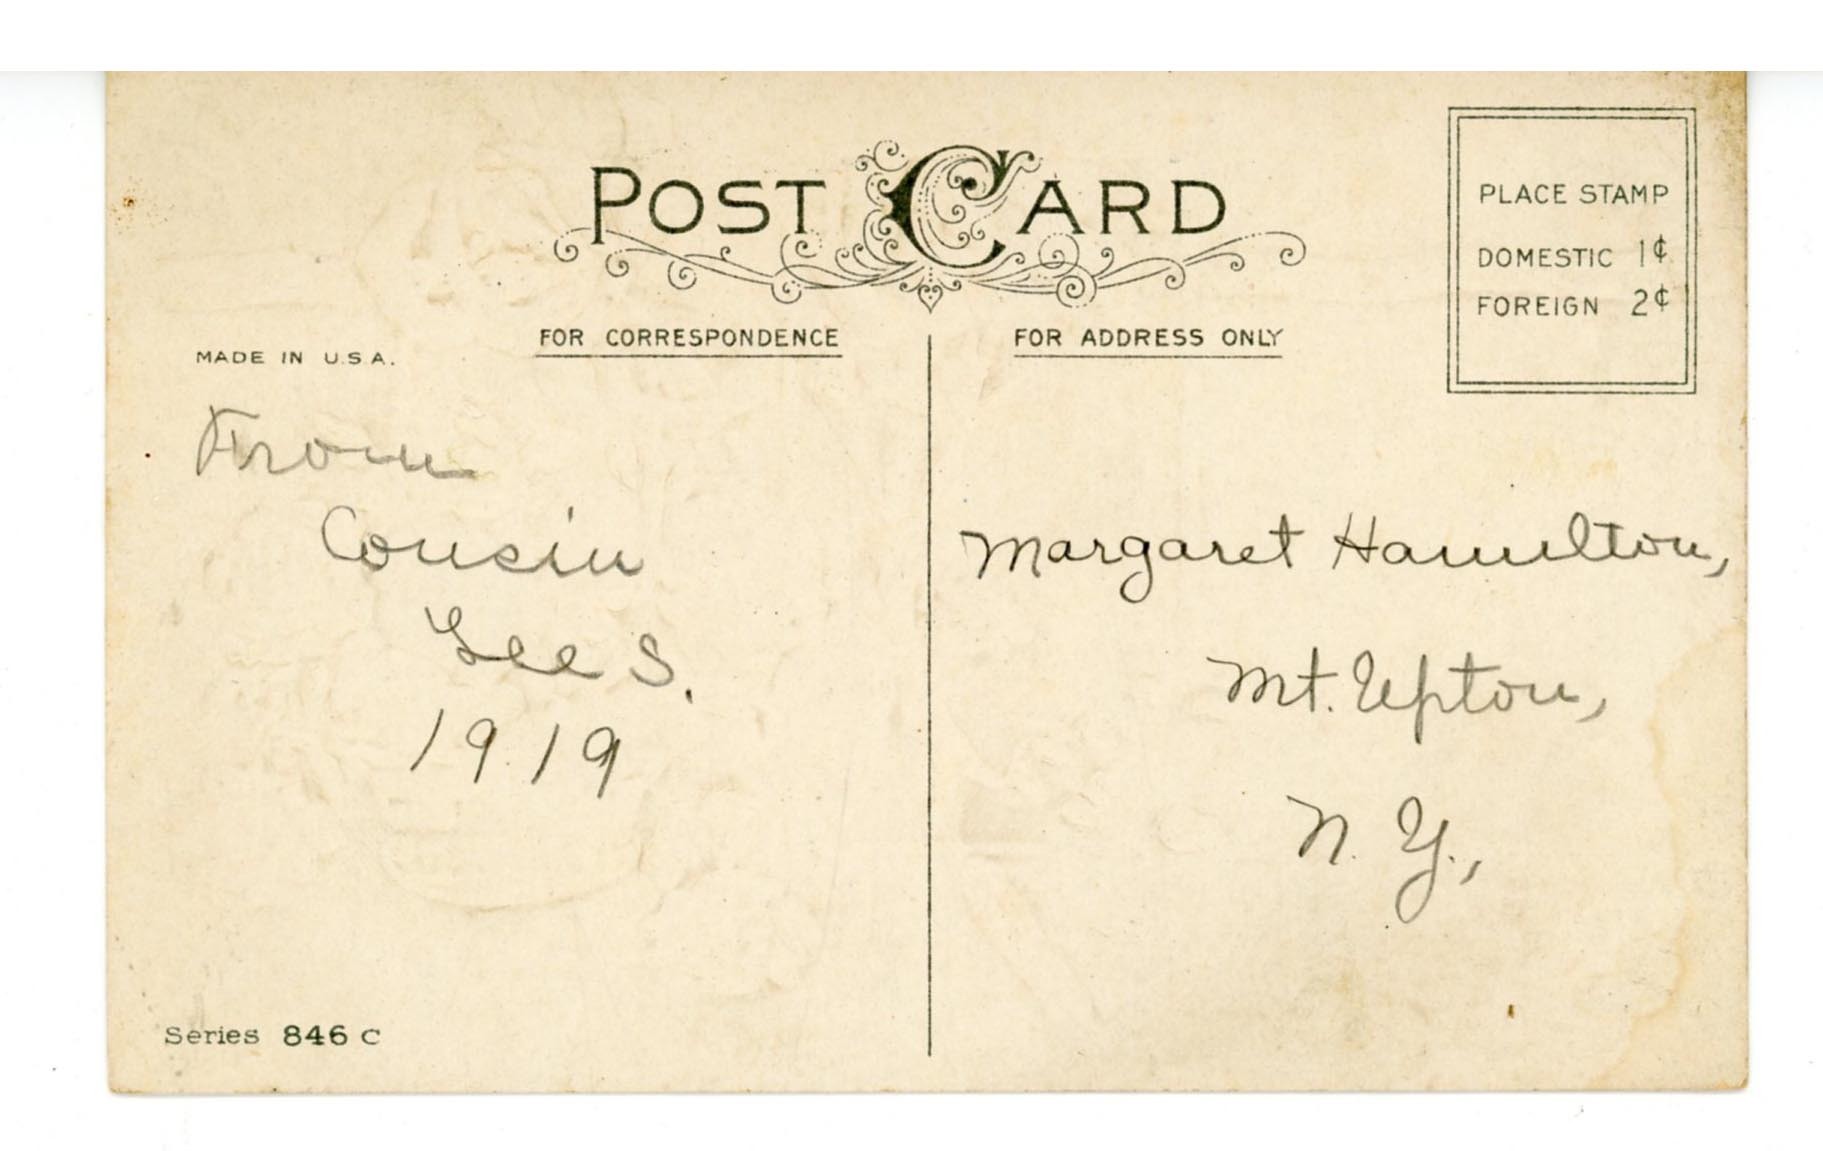 POST CARD
PLACE STAMP
DOMESTIC 1¢
FOREIGN 2¢
FOR CORRESPONDENCE
FOR ADDRESS ONLY
MADE IN U.S.A.
From
Cousin
Lee S.
1919
Margaret Hamilton,
Mt. Upton,
N. Y.,
Series 846 C